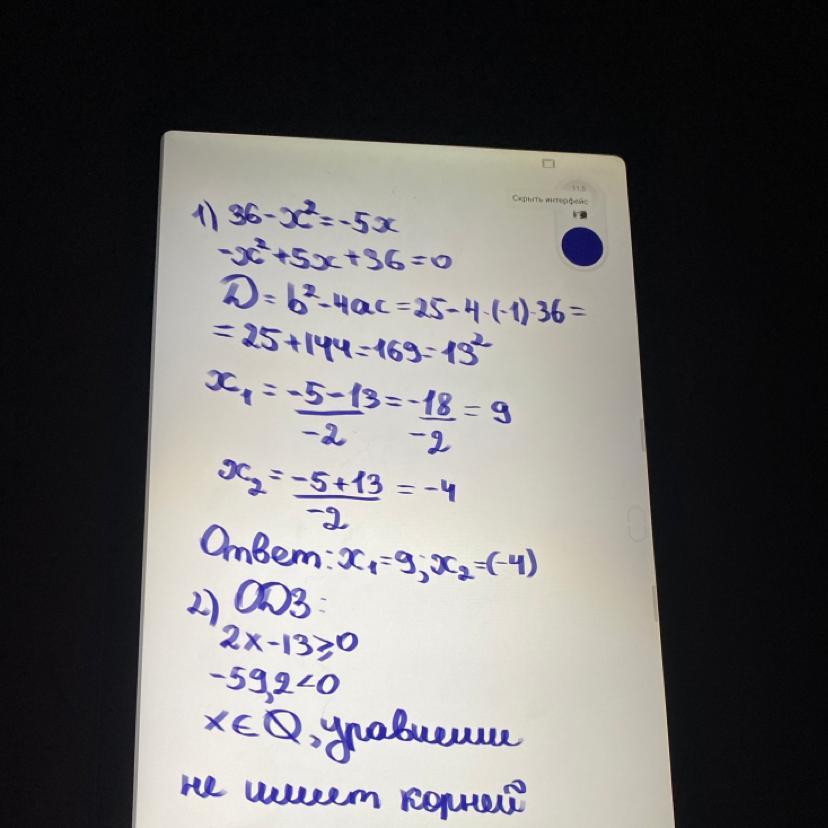 11.5
Скрыть интерфейс
1) 36-x²=-5x
-x²+5x+36=0
D=b²-4ac=25-4·(-1)·36=
=25+144=169=13²
x₁=-5-13/-2=-18/-2=9
x₂=-5+13/-2=-4
Ответ: x₁=9; x₂=(-4)
2) ОДЗ:
2x-13≥0
-59,2<0
x∈Q, уравнении
не имеет корней